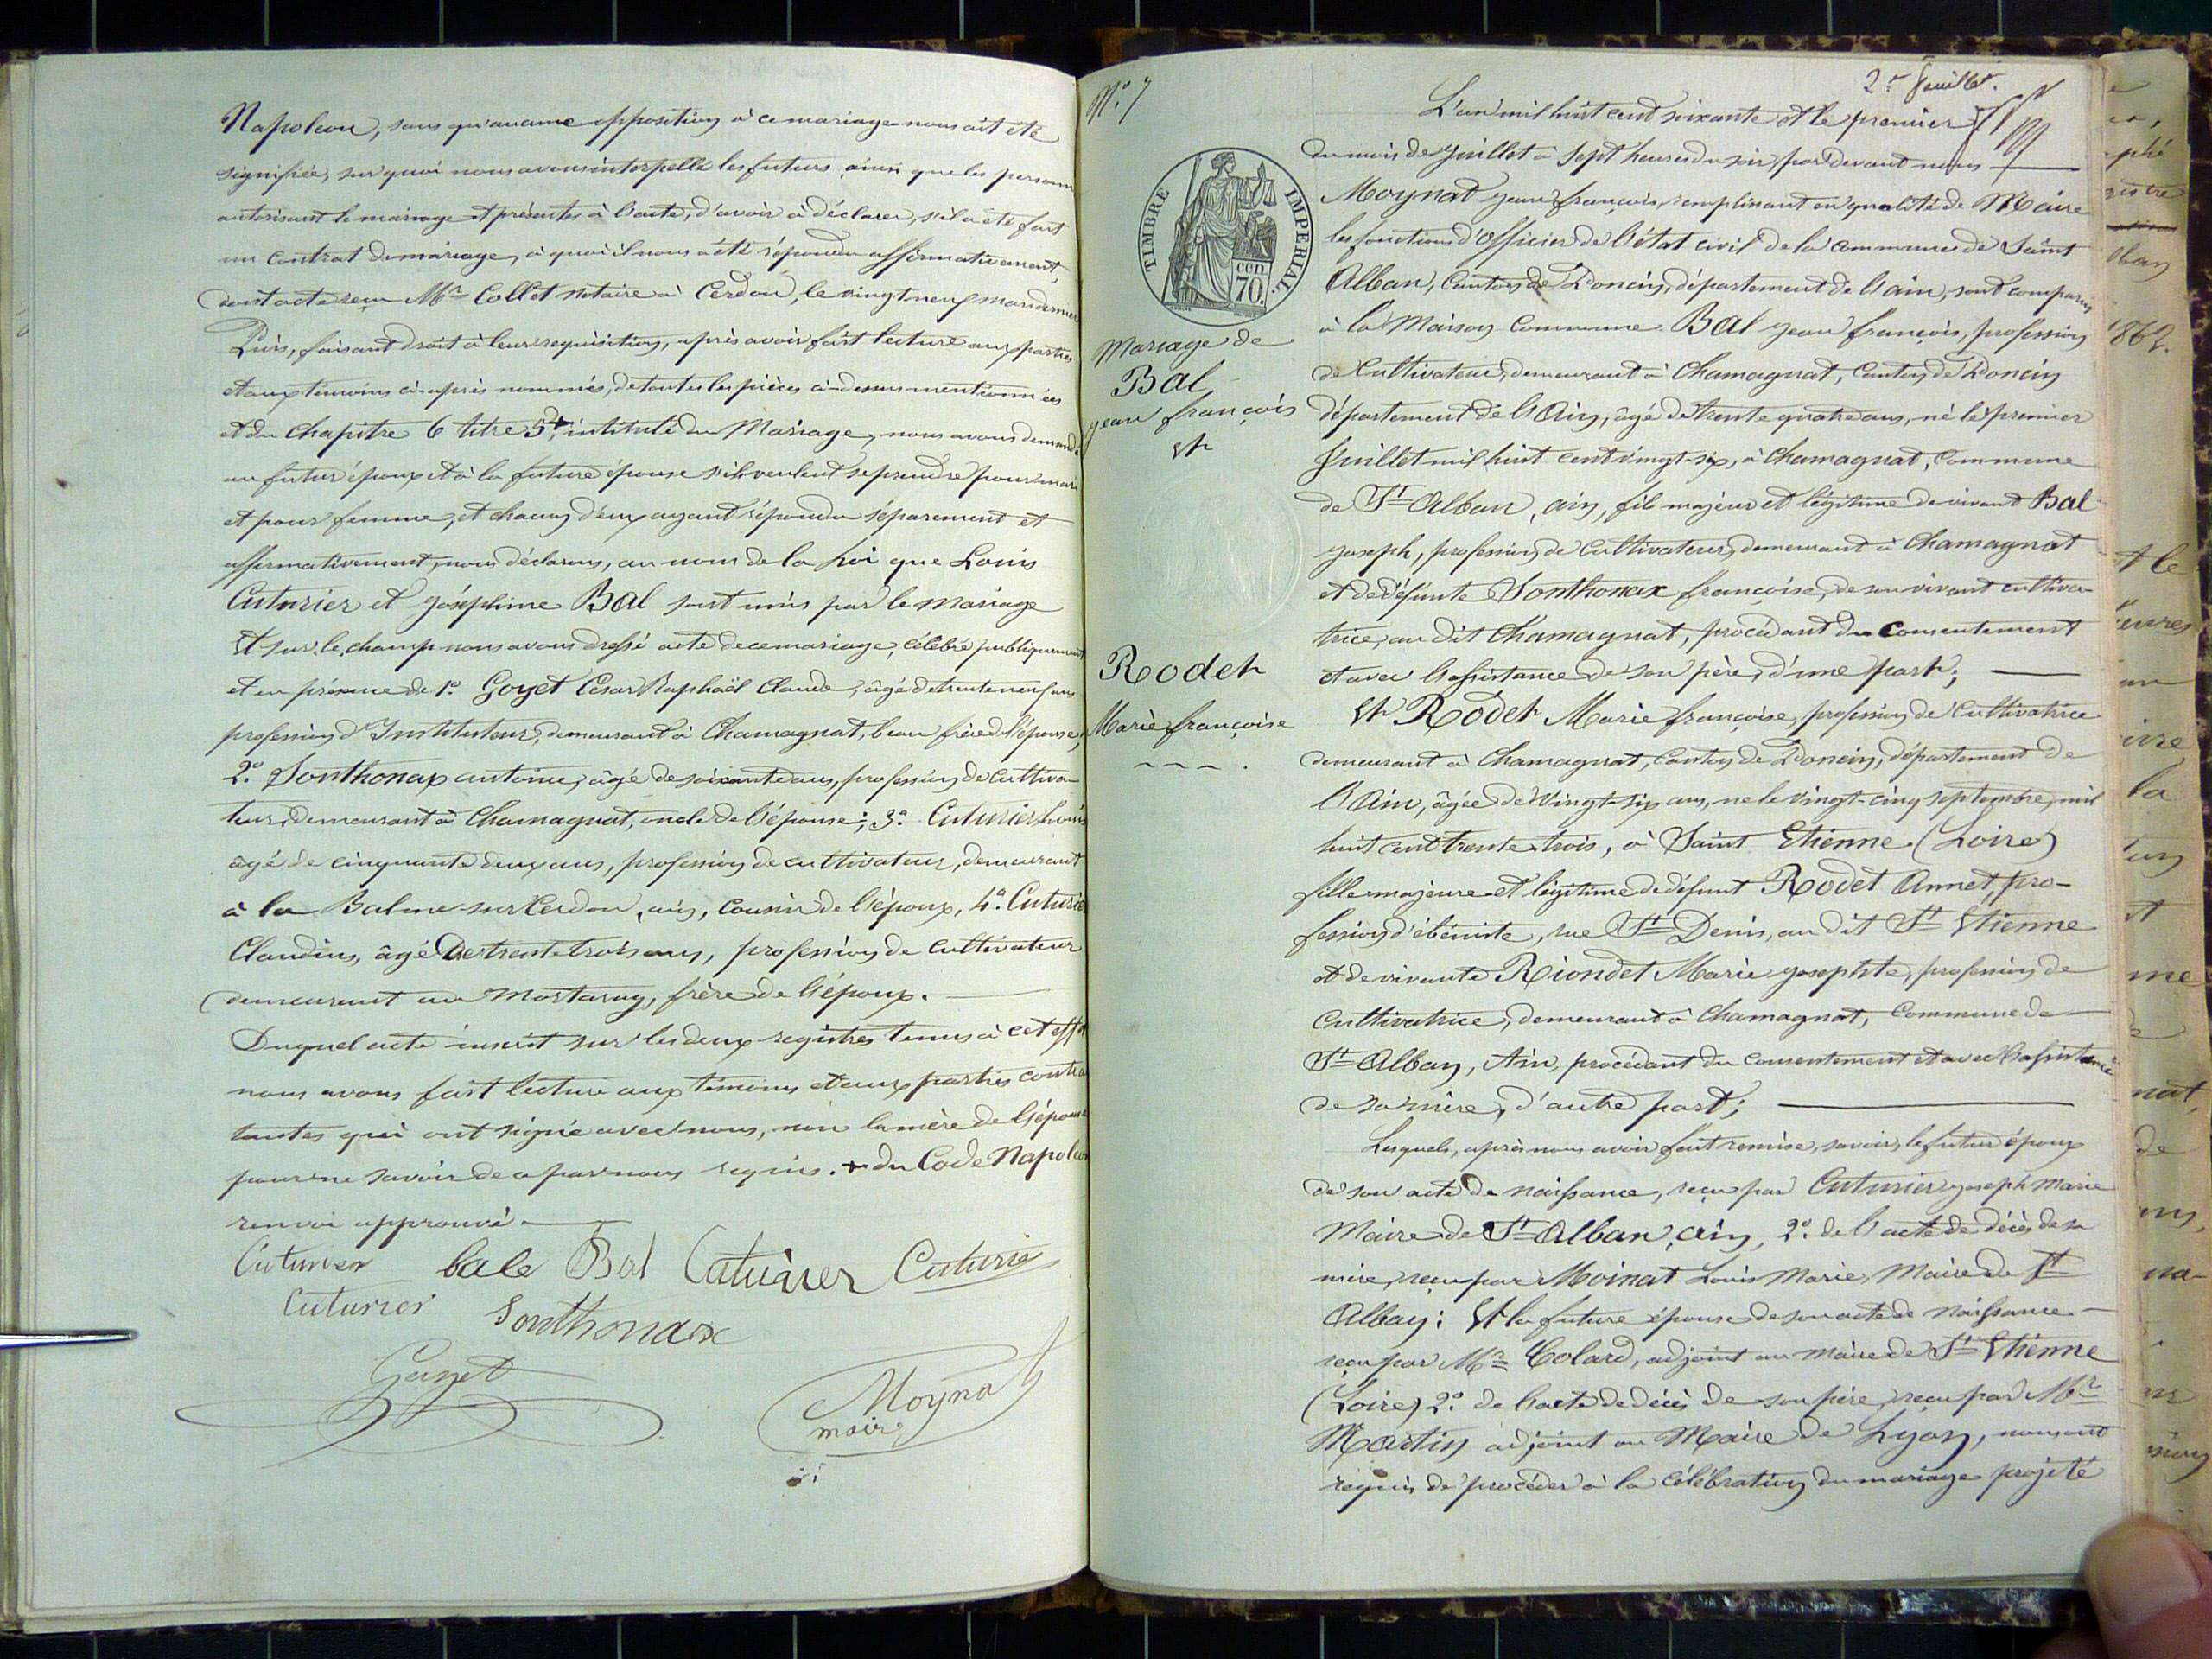 Napoléon, sans qu'aucune opposition à ce mariage nous ait été
signifiée, sur quoi nous avons interpellé les futurs ainsi que les personn
autorisant le mariage et présentes à l'acte, d'avoir à déclarer, s'il a été fait
un contrat de mariage, à quoi il nous a été répondu affirmativement,
dont acte reçu Mr Collet notaire à Cerdon, le vingt neuf mars dernier
Puis, faisant droit à leur requisition, après avoir fait lecture aux parties
et aux témoins ci-après nommés, de toutes les pièces ci-dessus mentionnées
et du chapitre 6 titre 5+, intitulé du Mariage, nous avons demandé
au futur époux et à la future épouse s'ils veulent se prendre pour mari
et pour femme, et chacun d'eux ayant répondu séparement et
affirmativement, nous déclarons, au nom de la loi que Louis
Cuturier et Joséphine Bal sont unis par le mariage
Et sur le champ nous avons dressé acte de ce mariage, célébré publiquement
et en présence de 1º Goyet César Raphaël Claude, âgé de trente neuf ans
profession d'Instituteur, demeurant à Chamagnat, beau frère de l'épouse;
2º Sonthonax antoine, âgé de soixante ans, profession de cultiva-
teur, demeurant à Chamagnat, oncle de l'épouse; 3º Cuturier Louis
âgé de cinquante deux ans, profession de cultivateur, demeurant
à la Balme sur Cerdon, ain, cousin de l'époux, 4º Cuturier
Claudius, âgé de trente trois ans, profession de cultivateur
demeurant au Mortaray, frère de l'époux.
Duquel acte inscrit sur les deux registres tenus à cet effet
nous avons fait lecture aux témoins et aux parties contra
tantes qui ont signé avec nous, non la mère de l'épouse
pour ne savoir de ce par nous requis. + du Code Napoléon
renvoi approuvé
Cuturier bale Bal Cuturier Cuturie
Cuturier Sonthonax
Goyet Moynat
maire
Nº 7
TIMBRE IMPERIAL
cen
70.
Mariage de
Bal
Jean françois
Et
Rodet
Marie françoise
2r Juillet.
L'an mil huit cent soixante et le premier
du mois de Juillet à sept heures du soir, par devant nous
Moynat Jean françois, remplissant en qualité de Maire
les fonctions d'officier de l'état civil de la commune de Saint
Alban, Canton de Poncin, département de l'ain, sont comparus
à la Maison Commune Bal Jean françois, profession
de Cultivateur, demeurant à Chamagnat, Canton de Poncin
département de l'Ain, âgé de trente quatre ans, né le premier
Juillet mil huit cent vingt-six, à Chamagnat, commune
de St Alban, ain, fils majeur et légitime de vivant Bal
Joseph, profession de Cultivateur, demeurant à Chamagnat
et de défunte Sonthonax françoise, de son vivant cultiva-
trice, au dit Chamagnat, procédant du Consentement
et avec l'assistance de son père, d'une part;
Et Rodet Marie françoise, profession de Cultivatrice
demeurant à Chamagnat, Canton de Poncin, département de
l'Ain, âgée de vingt-six ans, ne le vingt-cinq septembre, mil
huit cent trente trois, à Saint Etienne (Loire)
fille majeure et légitime de défunt Rodet Annet, pro-
fession d'ébéniste, rue St Denis, au dit St Etienne
et de vivante Riondet Marie Josephte, profession de
Cultivatrice, demeurant à Chamagnat, Commune de
St Alban, Ain, procédant du consentement et avec l'assistance
de sa mère, d'autre part;
Lesquels, après nous avoir fait remise, savoir, le futur époux
de son acte de naissance, reçu par Cuturier Joseph Marie
Maire de St Alban, ain, 2º de l'acte de décès de sa
mère, reçu par Moinat Louis Marie, Maire de St
Alban; Et la future épouse de son acte de naissance
reçu par Mr Colard, adjoint au maire de St Etienne
(Loire) 2º de l'acte de décès de son père, reçu par Mr
Martin adjoint au Maire de Lyon, nous ont
requis de procéder à la célébration du mariage projeté
1862.